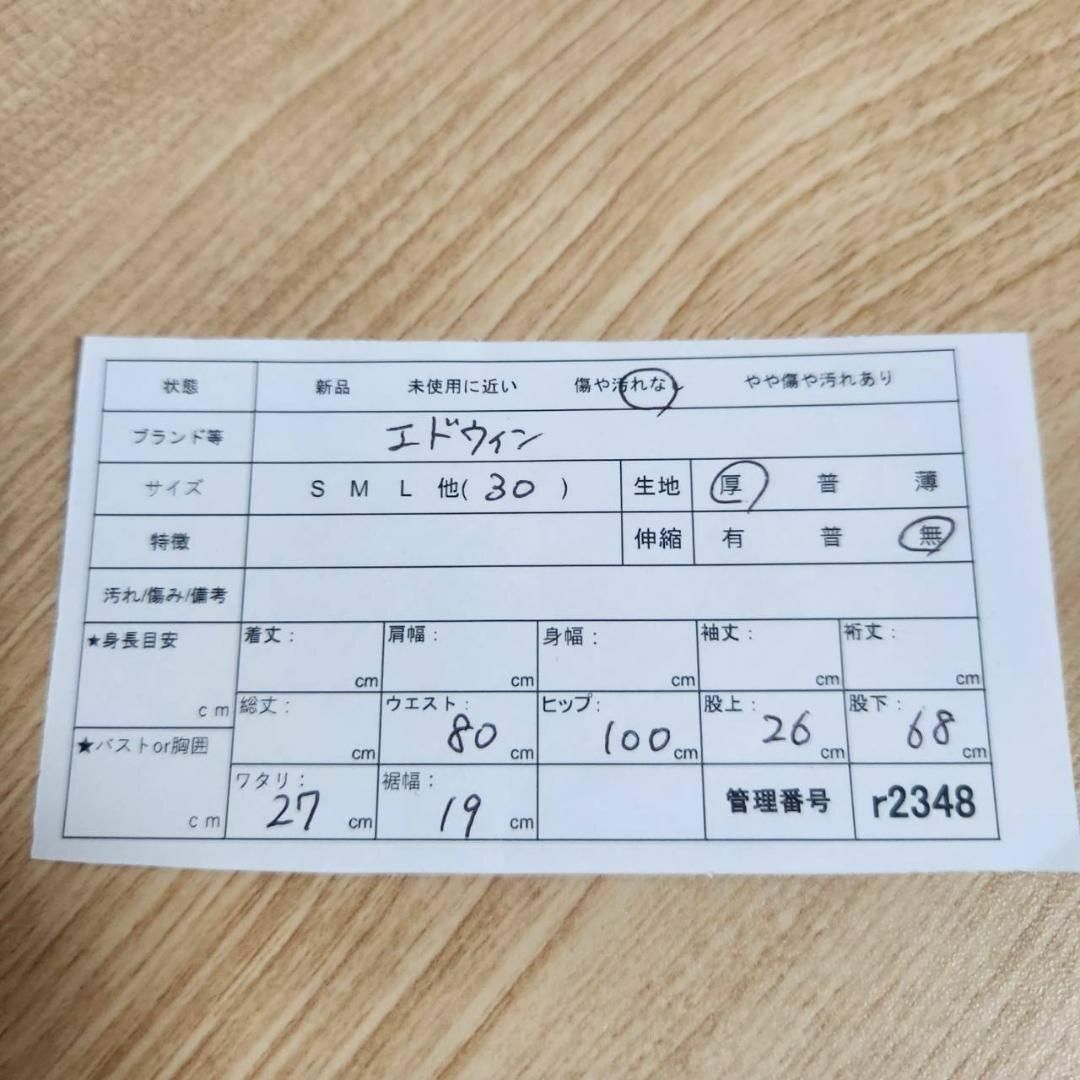 状態 新品 未使用に近い 傷や汚れなし やや傷や汚れあり
ブランド等 エドウィン
サイズ S M L 他( 30 ) 生地 厚 普 薄
特徴 伸縮 有 普 無
汚れ/傷み/備考
★身長目安 cm 着丈: cm 肩幅: cm 身幅: cm 袖丈: cm 裄丈: cm
総丈: cm ウエスト: 80 cm ヒップ: 100 cm 股上: 26 cm 股下: 68 cm
★バストor胸囲 cm ワタリ: 27 cm 裾幅: 19 cm 管理番号 r2348